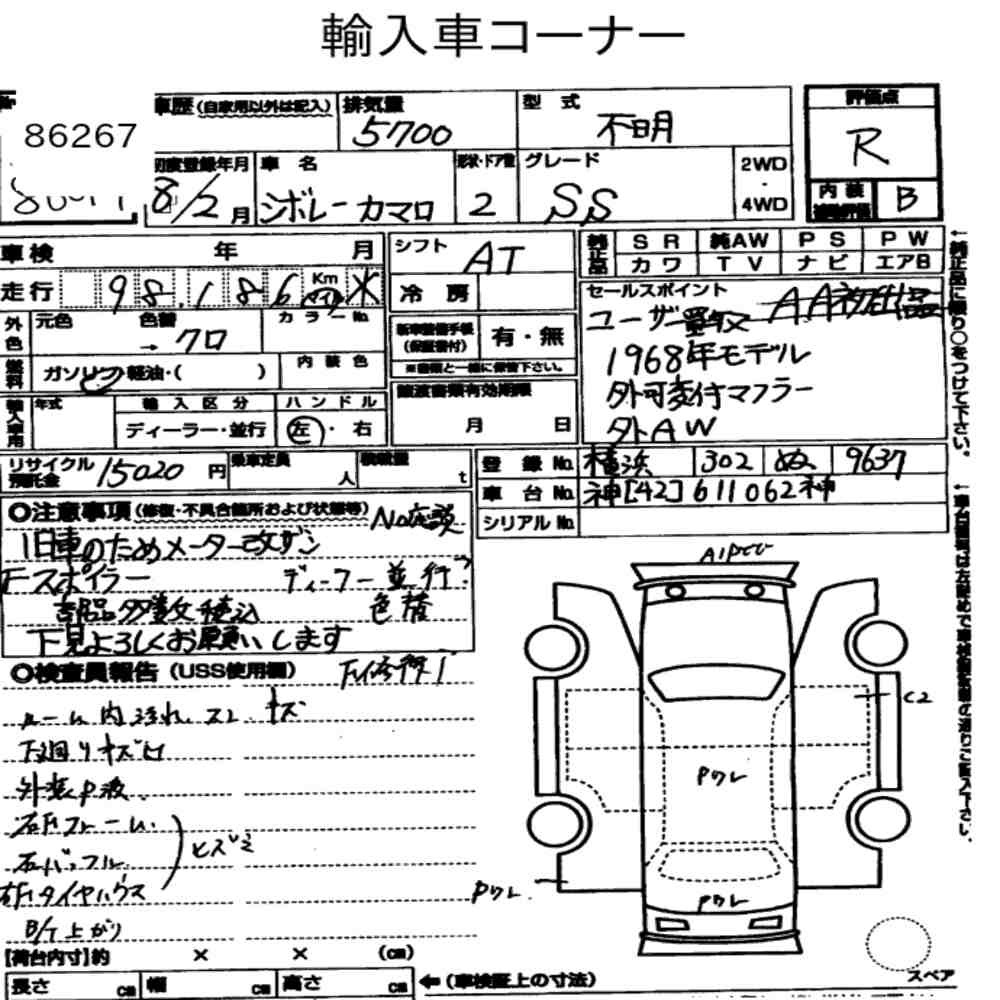 輸入車コーナー
86267
車歴 (自家用以外は記入)
排気量
5700
型式
不明
評価点
R
初度登録年月
8/2 月
車名
シボレー カマロ
形状・ドア数
2
グレード
SS
2WD
・
4WD
内装
補助評価
B
車検 年 月
走行 98,186 Km マイル
シフト
AT
冷房
純正品
SR 純AW PS PW
カワ TV ナビ エアB
セールスポイント
ユーザー買取 AA初出品
1968年モデル
外可変付マフラー
外AW
外色
元色 色替
→ クロ
カラーNo.
新車整備手帳
(保証書付)
有・無
※書類と一緒に保管下さい。
燃料
ガソリン・軽油・( )
内装色
譲渡書類有効期限
月 日
輸入車用
年式
輸入区分
ディーラー・並行
ハンドル
左・右
リサイクル預託金 15020 円
乗車定員 人
積載量 t
登録No. 横浜 302 ぬ 9637
車台No. 神[42]611062神
シリアルNo.
←純正品に限り○をつけて下さい。
○注意事項 (修復・不具合箇所および状態等)
旧車のためメーター改ザン
Fスポイラー ディーラー並行?
部品多数積込
下見よろしくお願いします
○検査員報告 (USS使用欄)
ルーム内汚れ、スレ、キズ
下廻りキズ凹
外装P波
右Fフレーム
右バッフル
右Fタイヤハウス
B/T上がり
C2
Pワレ
Pワレ
Pワレ
スペア
[荷台内寸]約 × × (cm)
長さ cm 幅 cm 高さ cm
← (車検証上の寸法)